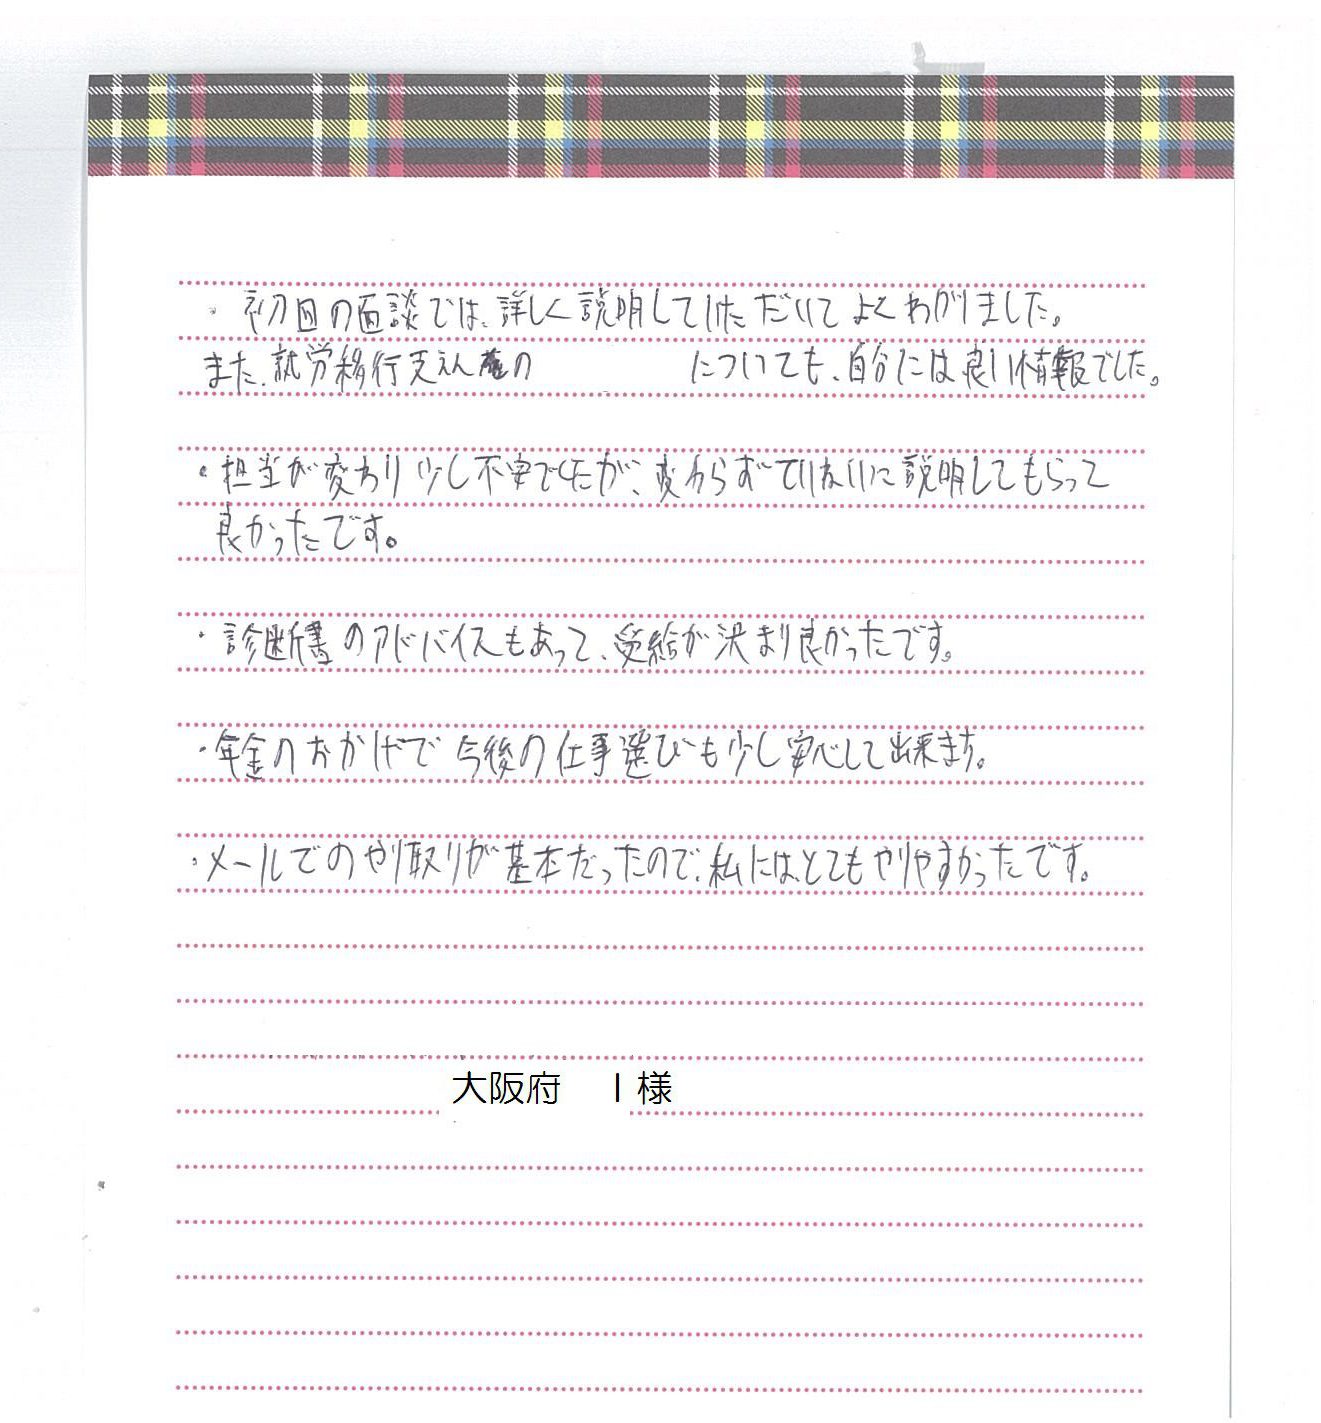 ・初回の面談では、詳しく説明していただいてよくわかりました。
また、就労移行支えん の についても、自分には良い情報でした。
・担当が変わり少し不安でしたが、変わらずていねいに説明してもらって
良かったです。
・診断書のアドバイスもあって、受給が決まり良かったです。
・年金のおかげで今後の仕事選びも少し安心して出来ます。
・メールでのやり取りが基本だったので、私にはとてもやりやすかったです。
大阪府 I様